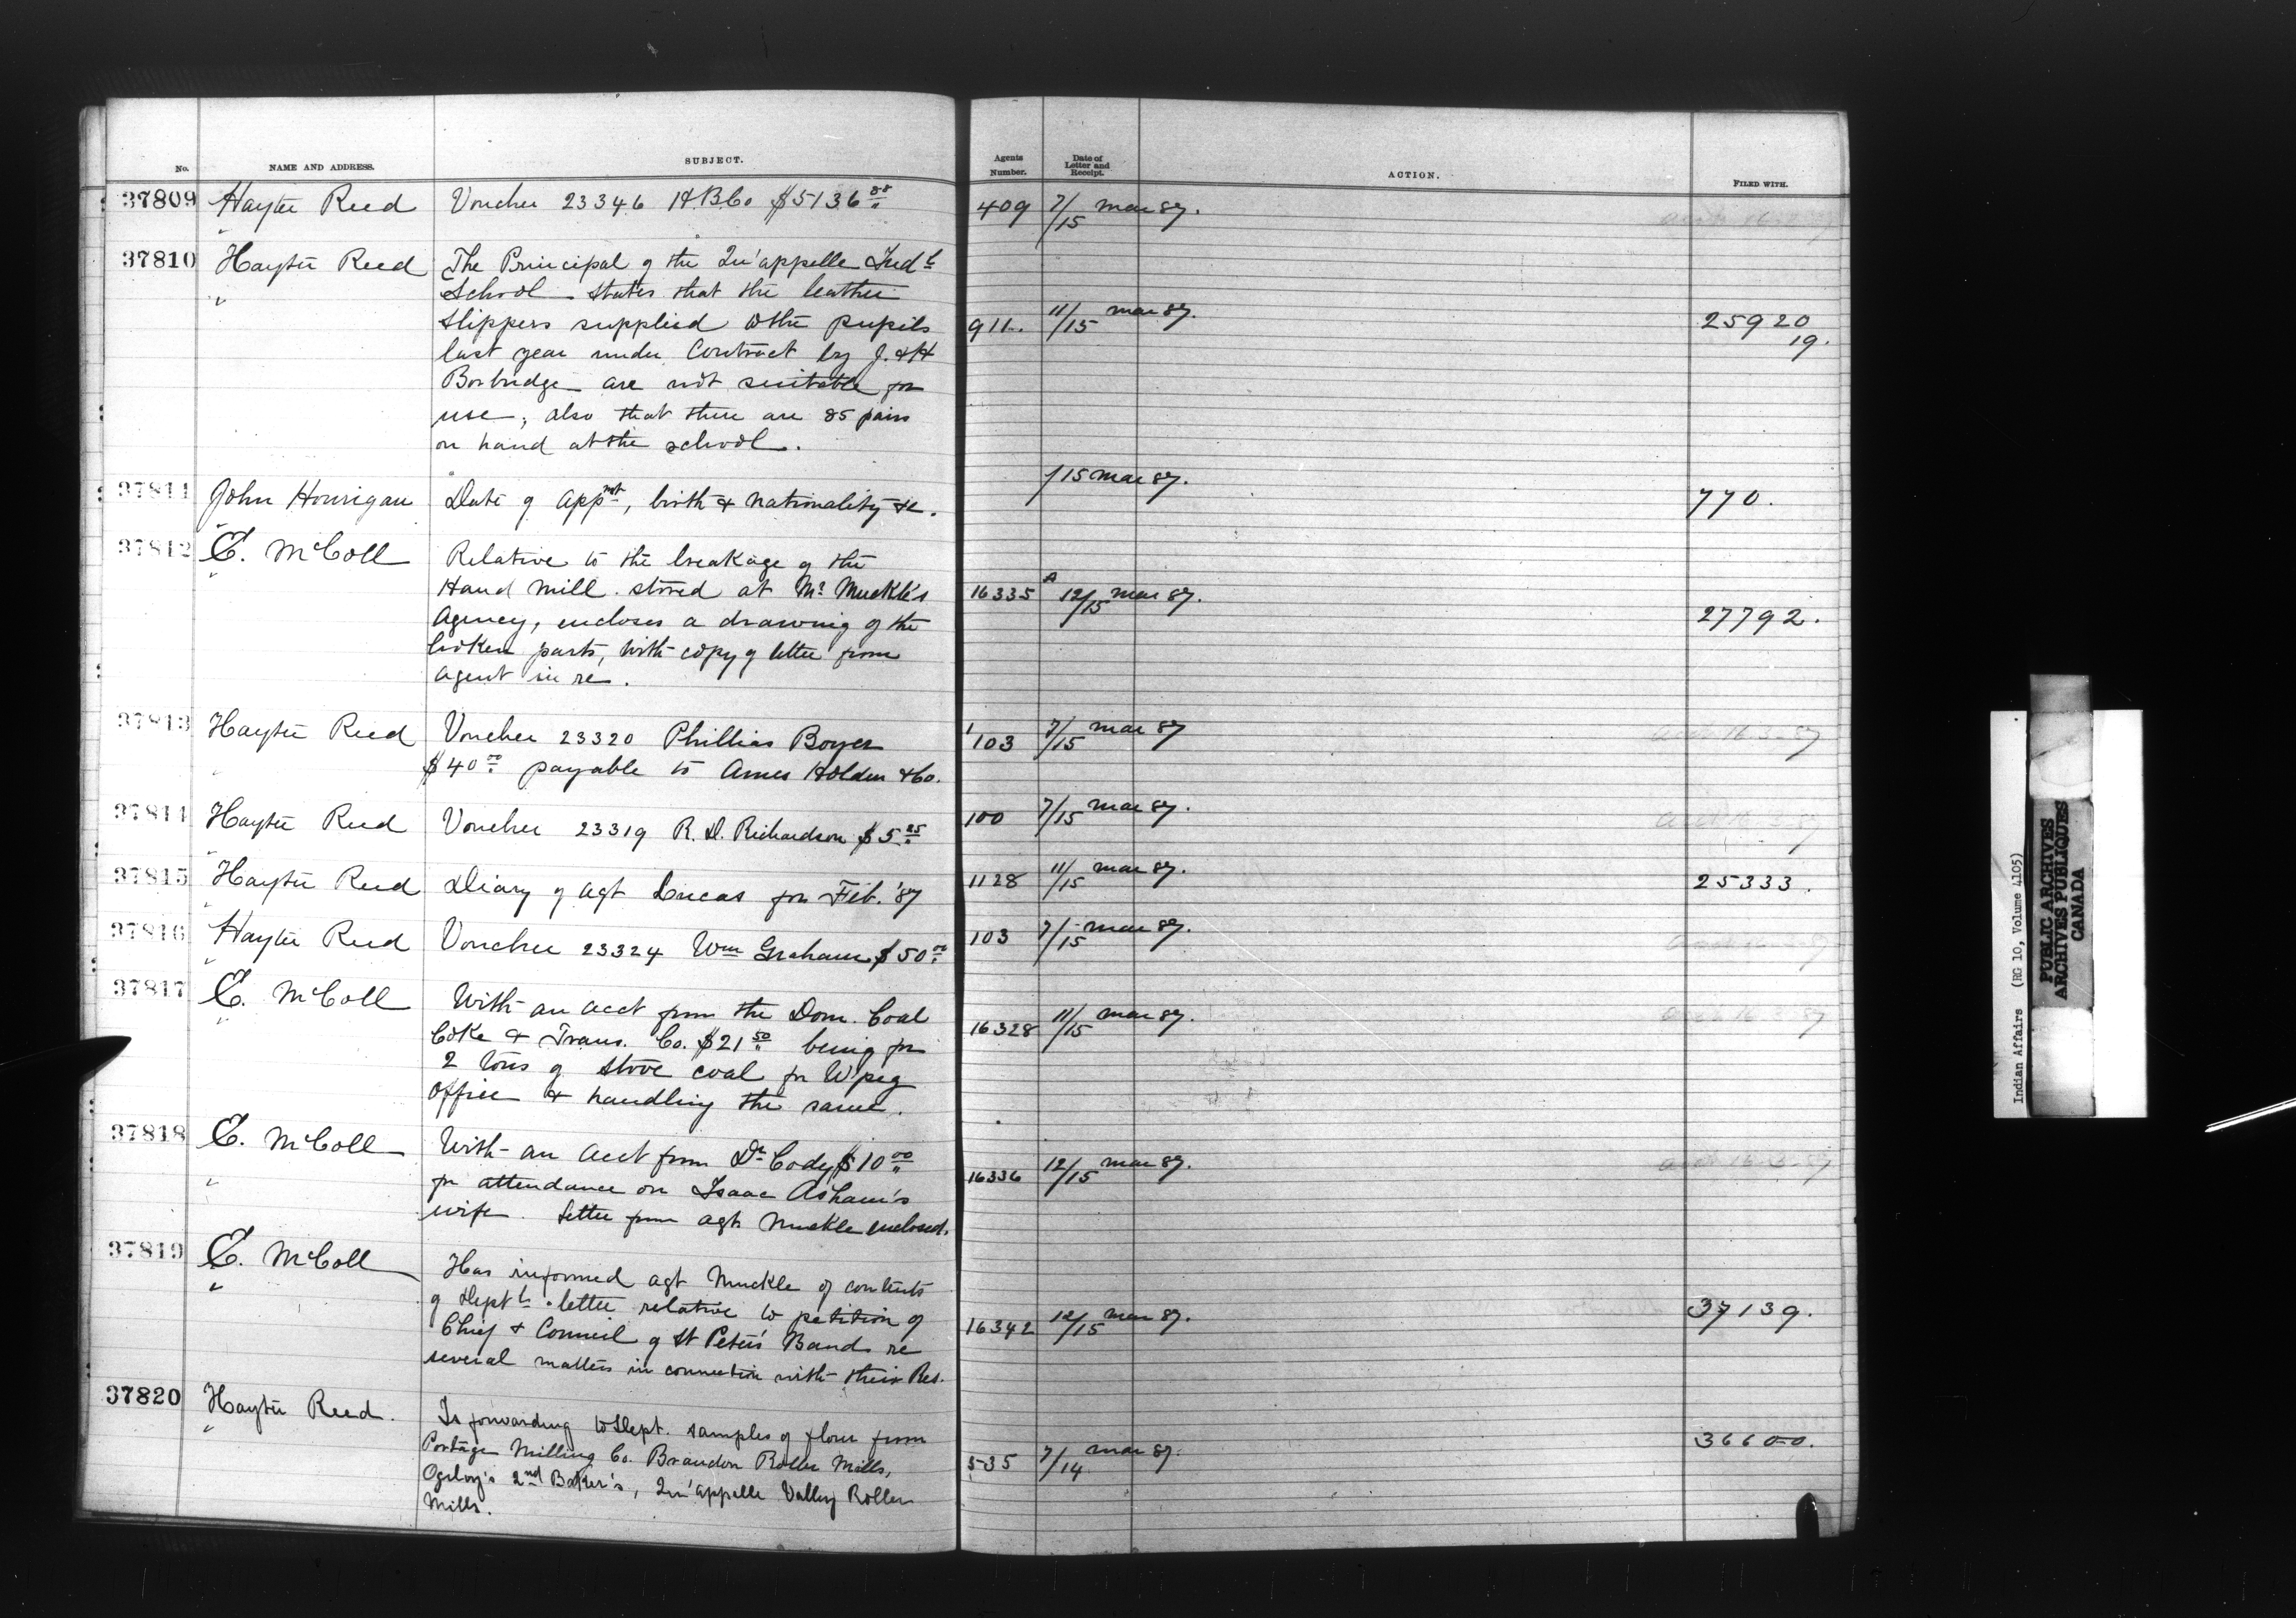 No. NAME AND ADDRESS. SUBJECT. Agents Number. Date of Letter and Receipt. ACTION. FILED WITH.
37809 Hayter Reed Voucher 23346 H.B.Co $5136.88 409 7/15 Mar 87.
37810 Hayter Reed The Principal of the Qu'appelle Indl
" School states that the leather
slippers supplied to the pupils 911. 11/15 Mar 87. 25920
last year under Contract by J. & H 19.
Borbridge are not suitable for
use; also that there are 85 pairs
on hand at the school.
37811 John Hourigan Date of appmt, birth & nationality &c. /15 Mar 87. 770.
37812 E. McColl Relative to the breakage of the
" Hand mill stored at Mr Muckle's 16335 A 12/15 Mar 87.
Agency, encloses a drawing of the 27792.
broken parts, with copy of letter from
agent in re.
37813 Hayter Reed Voucher 23320 Phillias Boyer 1103 7/15 Mar 87 16.3.87
$40.00 payable to Ames Holden & Co.
37814 Hayter Reed Voucher 23319 R. D. Richardson $5.25 100 7/15 Mar 87.
37815 Hayter Reed Diary of agt Lucas for Feb. '87 1128 11/15 Mar 87. 25333.
37816 Hayter Reed Voucher 23324 Wm Graham $50.00 103 7/15 Mar 87.
37817 E. McColl With an acct from the Dom. Coal
" Coke & Trans. Co. $21.50 being for 16328 11/15 Mar 87.
2 tons of stove coal for W'peg
office & handling the same.
37818 E. McColl With an acct from Dr Cody $10.00
" for attendance on Isaac Asham's 16336 12/15 Mar 87.
wife. Letter from agt Muckle enclosed.
37819 E. McColl Has informed agt Muckle of contents
" of Deptl letter relative to petition of 37139.
Chief & Council of St Peter's Band re 16342 12/15 Mar 87.
several matters in connection with their Res.
37820 Hayter Reed. Is forwarding to Dept. samples of flour from
" Portage Milling Co. Brandon Roller Mills, 535 7/14 Mar 87. 36600.
Ogilvy's 2nd Baker's, Qu'appelle Valley Roller
Mills.
Indian Affairs (RG 10, Volume 4105)
PUBLIC ARCHIVES
ARCHIVES PUBLIQUES
CANADA